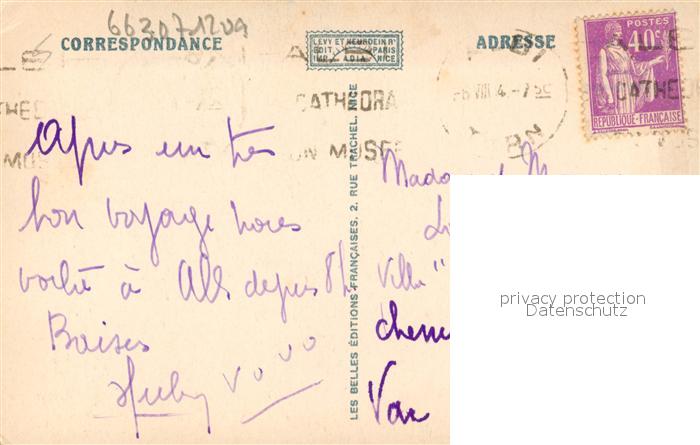 66307120a
CORRESPONDANCE
LEVY ET NEURDEIN Rs
EDIT. PARIS
IMP. ADIA NICE
ADRESSE
POSTES
40c
REPUBLIQUE-FRANÇAISE
CATHEDRA
CATHEDR
4 - 7
Apres un tres
bon voyage nous
voila à Albi depuis 8h
Baisers
LES BELLES ÉDITIONS FRANÇAISES, 2, RUE TRACHEL, NICE
Villa "
chem
Var
privacy protection
Datenschutz